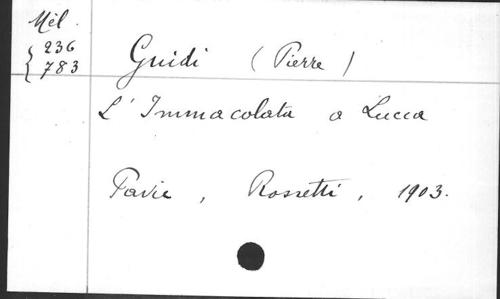 Mél.
236
783
Guidi (Pierre)
L'Immacolata a Lucca
Pavie, Rossetti, 1903.